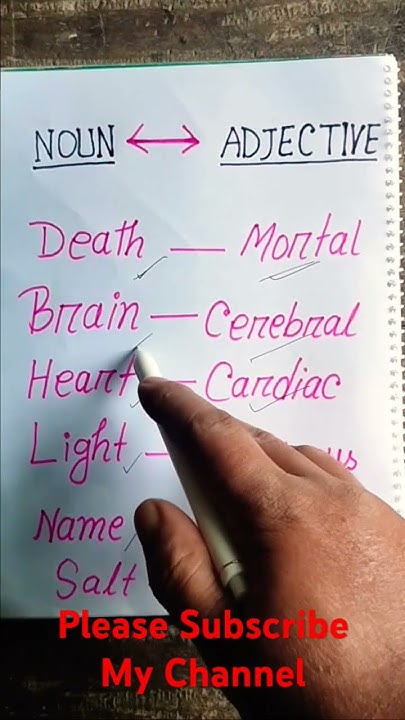 NOUN ↔ ADJECTIVE
Death — Mortal
Brain — Cerebral
Heart — Cardiac
Light —
Name
Salt
Please Subscribe
My Channel